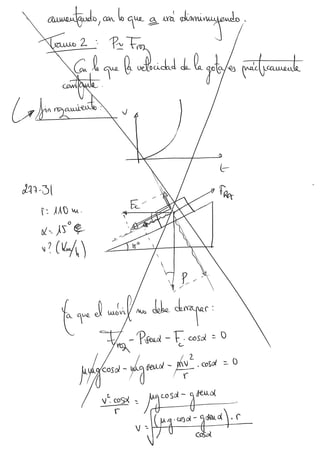 aumentando, con lo que a irá disminuyendo.
Tramo 2: P ≈ Froz
Con lo que la velocidad de la gota es prácticamente
constante.
Sin rozamiento.
v
t
277-31
r = 110 m.
α = 15°
v? (Km/h)
Fc
FRoz
P
Ya que el móvil no debe derrapar:
Froz - P senα - Fc · cosα = 0
μmg cosα - mg senα - mv²/r · cosα = 0
v² · cosα / r = μg cosα - g senα
v = √((μ·g·cosα - g senα) · r / cosα)